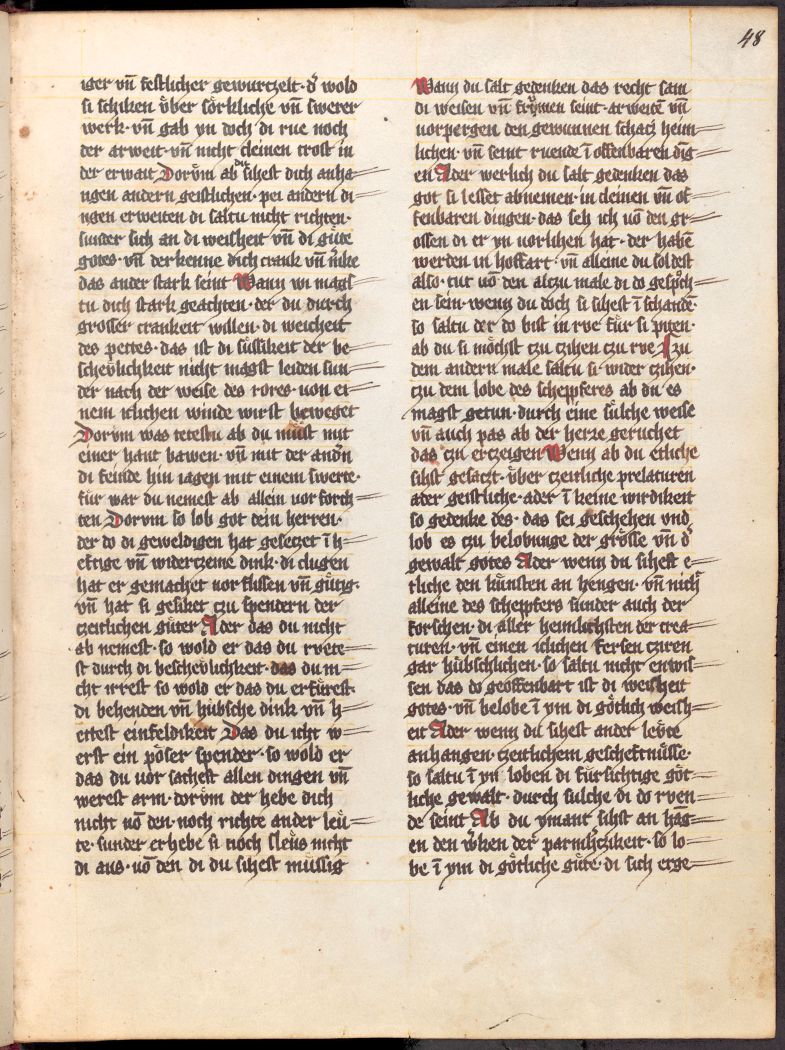 48
iger vn̄ festlicher gewurtzelt · d᷒ wold
si schiken vͤber sorkliche vn̄ swerer
werk · vn̄ gab yn doch di rue noch
der arweit · vn̄ nicht cleinen trost in
der erwait Dorvͤm ab du sihest dich anha-
ngen andern geistlichen · pei andern di-
ngen erweiten di saltu nicht richten ·
sunder sich an di weisheit vn̄ di guͤte
gotes · vn̄ derkenne dich crank vn̄
das ander stark seint Wann wi magst
tu dich stark geachten · der du durch
grosser crankeit willen · di weicheit
des pettes · das ist di sussikeit der be-
schevlichkeit nicht magst leiden sun-
der nach der weise des rores · von ei-
nem iclichen winde wirst beweget
Dorvm was tetestu ab du muͤst mit
einer hant bawen · vn̄ mit der andn̄
di feinde hin iagen mit einem swerte ·
fur war du nemest ab allein vor forch-
ten Dorvm so lob got dein herren ·
der do di geweldigen hat gesetzet ī h-
eftige vn̄ widerczeme dink · di clugen
hat er gemachet vor flussen vn̄ guͤtig ·
vn̄ hat si geschiket czu spendern der
czeitlichen guͤter Ader das du nicht
ab nemest · so wold er das du rvete-
st durch di beschevlichkeit · das du ni-
cht irrest so wold er das du erfurest ·
di behenden vn̄ hubsche dink vn̄ h-
ettest einfeldikeit Das du icht w-
erst ein poͤser spender · so wold er
das du vor sachest allen dingen vn̄
werest arm · dorvͤm der hebe dich
nicht vō den · noch richte ander leu-
te · sunder erhebe si noch sleus nicht
di aus · vō den di du sihest mussig
Wann du salt gedenken das recht sam
di weisen vn̄ frumen seint · arweitē vn̄
vorpergen den gewunnen schacz heim-
lichen · vn̄ seint ruende ī offenbaren dīg-
en Ader werlich du salt gedenken das
got si lesset abnemen in cleinen vn̄ of-
fenbaren dingen · das seh ich vō den gr-
ossen di er yn vorlihen hat · der habē
werden in hoffart · vn̄ alleine du soldest
also · tut vō den alczu male di do gesproͤch-
en sein · wenn du doch si sihest ī schandē ·
so saltu der do bist in rve fuͤr si piten ·
ab du si moͤchst czu czihen czu rve Czu
dem andern male saltu si wider czihen ·
czu dem lobe des scheppferes ab du es
magst getun · durch eine suͤlche weise
vn̄ auch pas ab der herze geruchet
das czu erczeigen Wenn ab du etliche
sihst gesaczt · vͤber czeitliche prelaturen
ader geistliche · ader ī keine wirdikeit
so gedenke des · das sei geschehen vnd
lob es czu belobunge der groͤsse vn̄ d᷒
gewalt gotes Ader wenn du sihest e-
tliche den kuͤnsten an hengen · vn̄ nicht
alleine des scheppfers sunder auch der
forschen · di aller heimlichsten der crea-
turen · vn̄ einen iclichen fersen cziren
gar huͤbschlichen · so saltu nicht enwis-
sen das do geoffenbart ist di weisheit
gotes · vn̄ belobe ī ym di goͤtlich weish-
eit Ader wenn du sihest ander levͤte
anhangen · czeitlichem gescheftnuͤsse ·
so saltu ī yn loben di fuͤrsichtige goͤt-
liche gewalt · durch sulche di do rven-
de seint Ab du ymant sihst an hāg-
en den w᷒ken der parmh᷒czikeit · so lo-
be ī ym di goͤtliche guͤte · di sich erge-